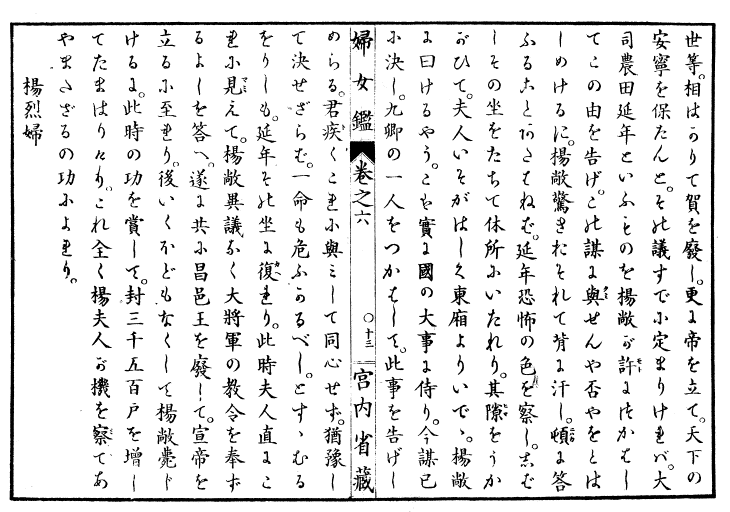 世等。相はかりて賀を廢し。更に帝を立て。天下の
安寧を保たんと。その議すでに定まりければ。大
司農田延年といふものを楊敞が許につかはし
てこの由を告げ。この謀に與せんや否やをとは
しめけるに。楊敞驚きおそれて背に汗し。頓に答
ふることあたはねば。延年恐怖の色を察し。しば
しその坐をたちて休所にいたれり。其隙をうか
がひて。夫人いそがはしく東廂よりいでゝ。楊敞
に曰けるやう。こは實に國の大事に侍り。今謀已
に決し。九卿の一人をつかはして。此事を告げし
婦女鑑 卷之六 ○十三 宮内省藏
めらる。君疾くこれに與みして同心せず。猶豫し
て決せざらば。一命も危ふかるべし。とすゝむる
をりしも。延年その坐に復れり。此時夫人直にこ
れに見えて。楊敞異議なく大將軍の教令を奉ず
るよしを答へ。遂に共に昌邑王を廢して。宣帝を
立るに至れり。後いくほどもなくして楊敞薨じ
けるに。此時の功を賞して。封三千五百戸を増し
てたまはりけり。これ全く楊夫人が機を察てあ
やまたざるの功によれり。
楊烈婦